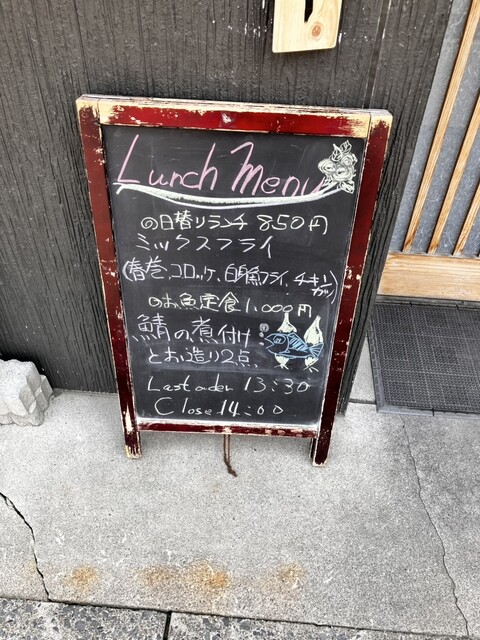 Lunch Menu
日替りランチ 850円
ミックスフライ
(春巻、コロッケ、白身魚フライ、チキンカツ)
お魚定食 1,000円
鯖の煮付け
とお造り2点
Last order 13:30
Close 14:00